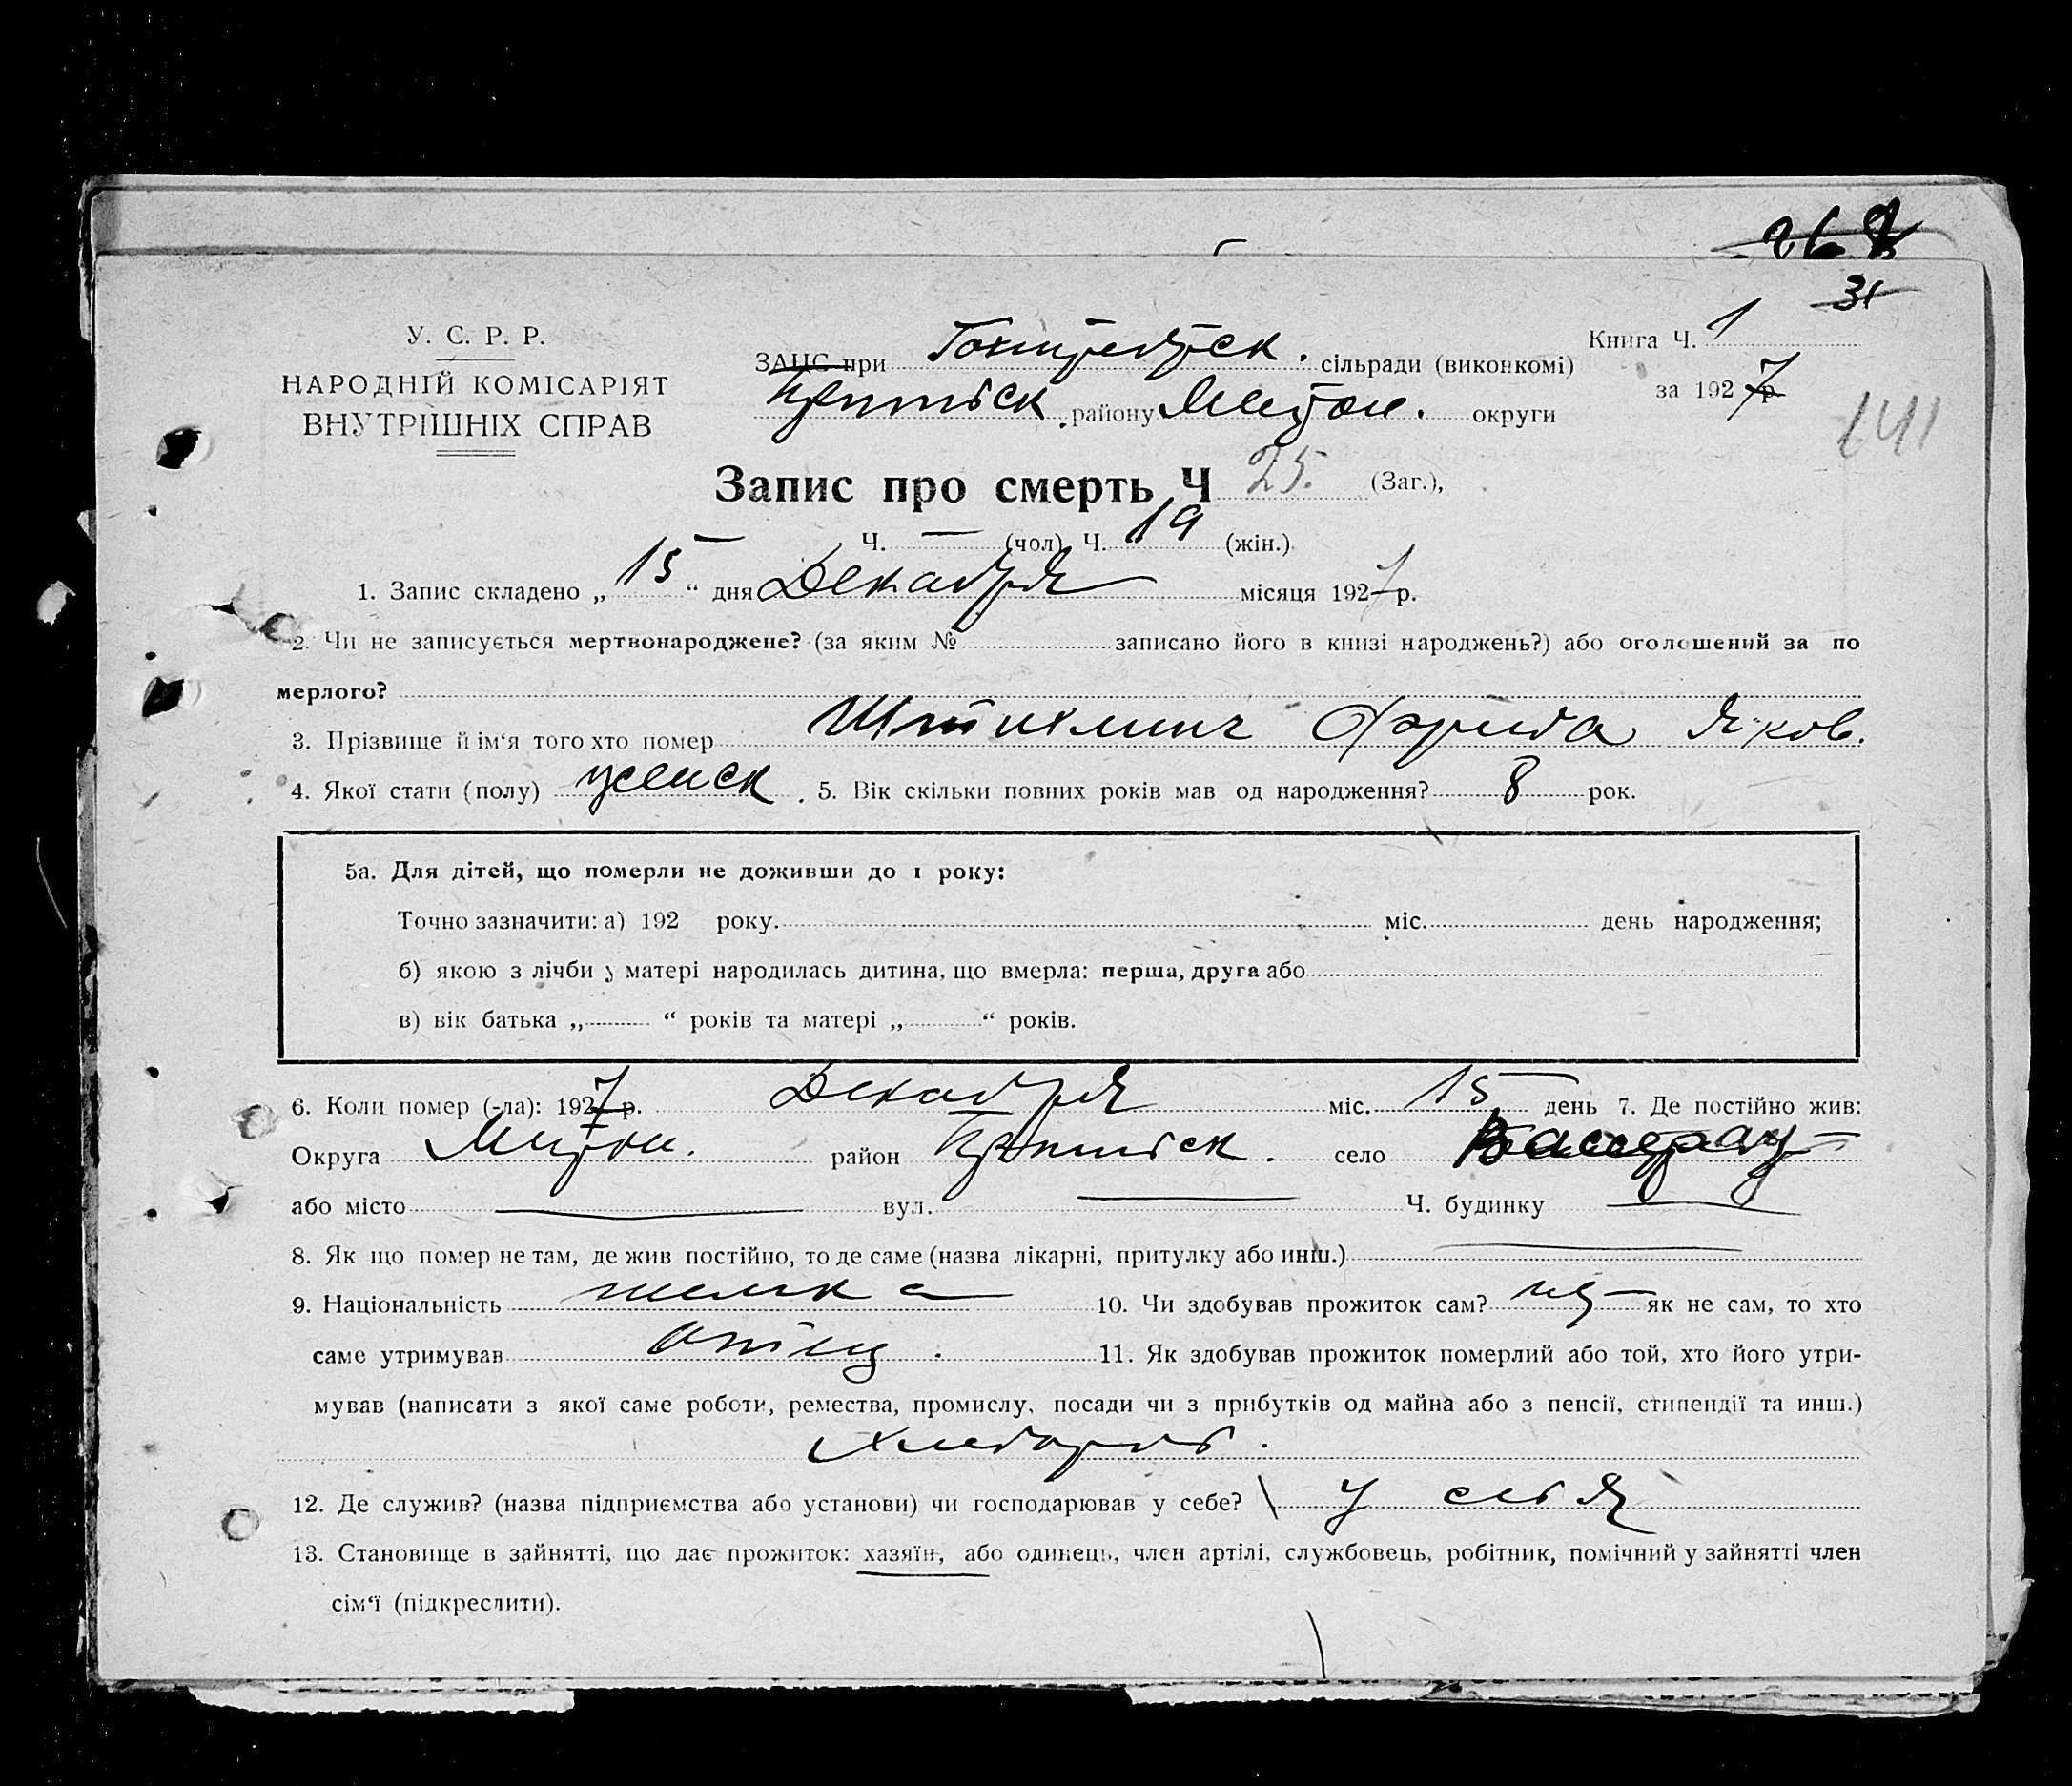 267
31
У. С. Р. Р.
НАРОДНІЙ КОМІСАРІЯТ
ВНУТРІШНІХ СПРАВ
ЗАЦС при Гохштедтск. сільради (виконкомі)
Книга Ч. 1
району Мелітоп. округи
за 1927 р.
141
Запис про смерть Ч 25. (Заг.),
Ч. — (чол) Ч. 19 (жін.)
1. Запис складено „ 15 “ дня Декабря місяця 1927 р.
2. Чи не записується мертвонароджене? (за яким № записано його в книзі народжень?) або оголошений за по
мерлого?
3. Прізвище й ім‘я того хто помер Фрида Яков.
4. Якої стати (полу) женск. 5. Вік скільки повних років мав од народження? 8 рок.
5а. Для дітей, що померли не доживши до 1 року:
Точно зазначити: а) 192 року. міс. день народження;
б) якою з лічби у матері народилась дитина, що вмерла: перша, друга або
в) вік батька „ “ років та матері „ “ років.
6. Коли помер (-ла): 1927 р. Декабря міс. 15 день 7. Де постійно жив:
Округа район село Вассерау
або місто — вул. — Ч. будинку —
8. Як що помер не там, де жив постійно, то де саме (назва лікарні, притулку або инш.) —
9. Національність немка 10. Чи здобував прожиток сам? як не сам, то хто
саме утримував отец. 11. Як здобував прожиток померлий або той, хто його утри-
мував (написати з якої саме роботи, ремества, промислу, посади чи з прибутків од майна або з пенсії, стипендії та инш.)
Хлебороб.
12. Де служив? (назва підприємства або установи) чи господарював у себе? у себя
13. Становище в зайнятті, що дає прожиток: хазяїн, або одинець, член артілі, службовець, робітник, помічний у зайнятті член
сім‘ї (підкреслити).